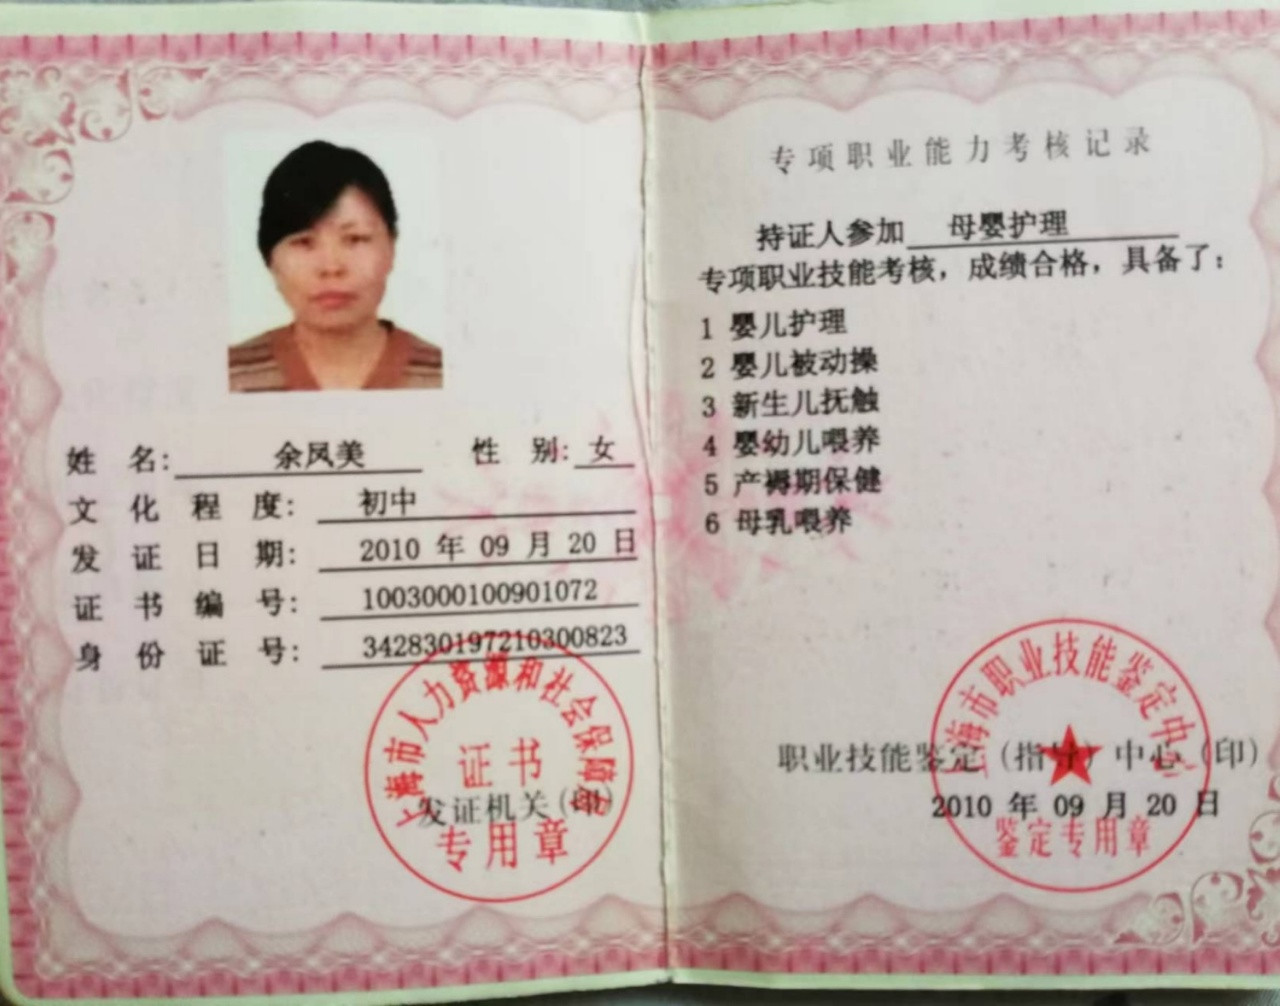 姓 名： 余凤美 性 别：女
文 化 程 度： 初中
发 证 日 期： 2010 年 09 月 20 日
证 书 编 号： 1003000100901072
身 份 证 号： 342830197210300823
上海市人力资源和社会保障局
证书
发证机关（印）
专用章
专项职业能力考核记录
持证人参加 母婴护理
专项职业技能考核，成绩合格，具备了：
1 婴儿护理
2 婴儿被动操
3 新生儿抚触
4 婴幼儿喂养
5 产褥期保健
6 母乳喂养
上海市职业技能鉴定中心
职业技能鉴定（指导）中心（印）
2010 年 09 月 20 日
鉴定专用章